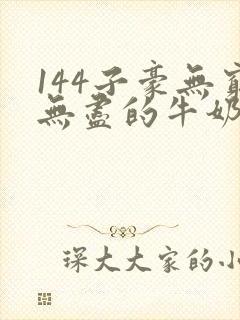 144子豪無窮
無盡的牛奶
琛大大家的小